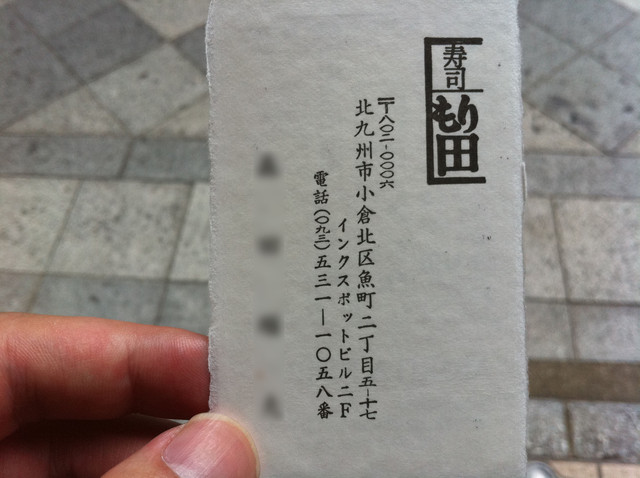 寿司
もり田
〒八〇二-〇〇〇六
北九州市小倉北区魚町二丁目五-十七
インクスポットビル二F
電話(〇九三)五三一-一〇五八番